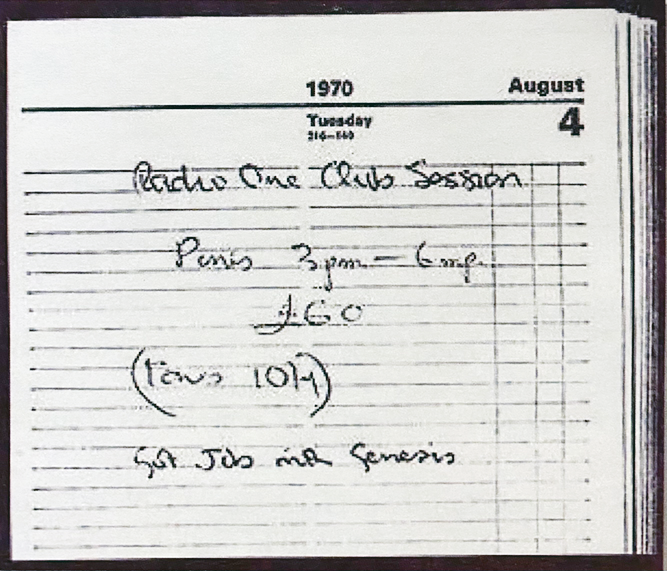 1970 August
Tuesday 4
216-149
Radio One Club Session
Paris 3pm - 6mp.
£60
(
Got Job with Genesis